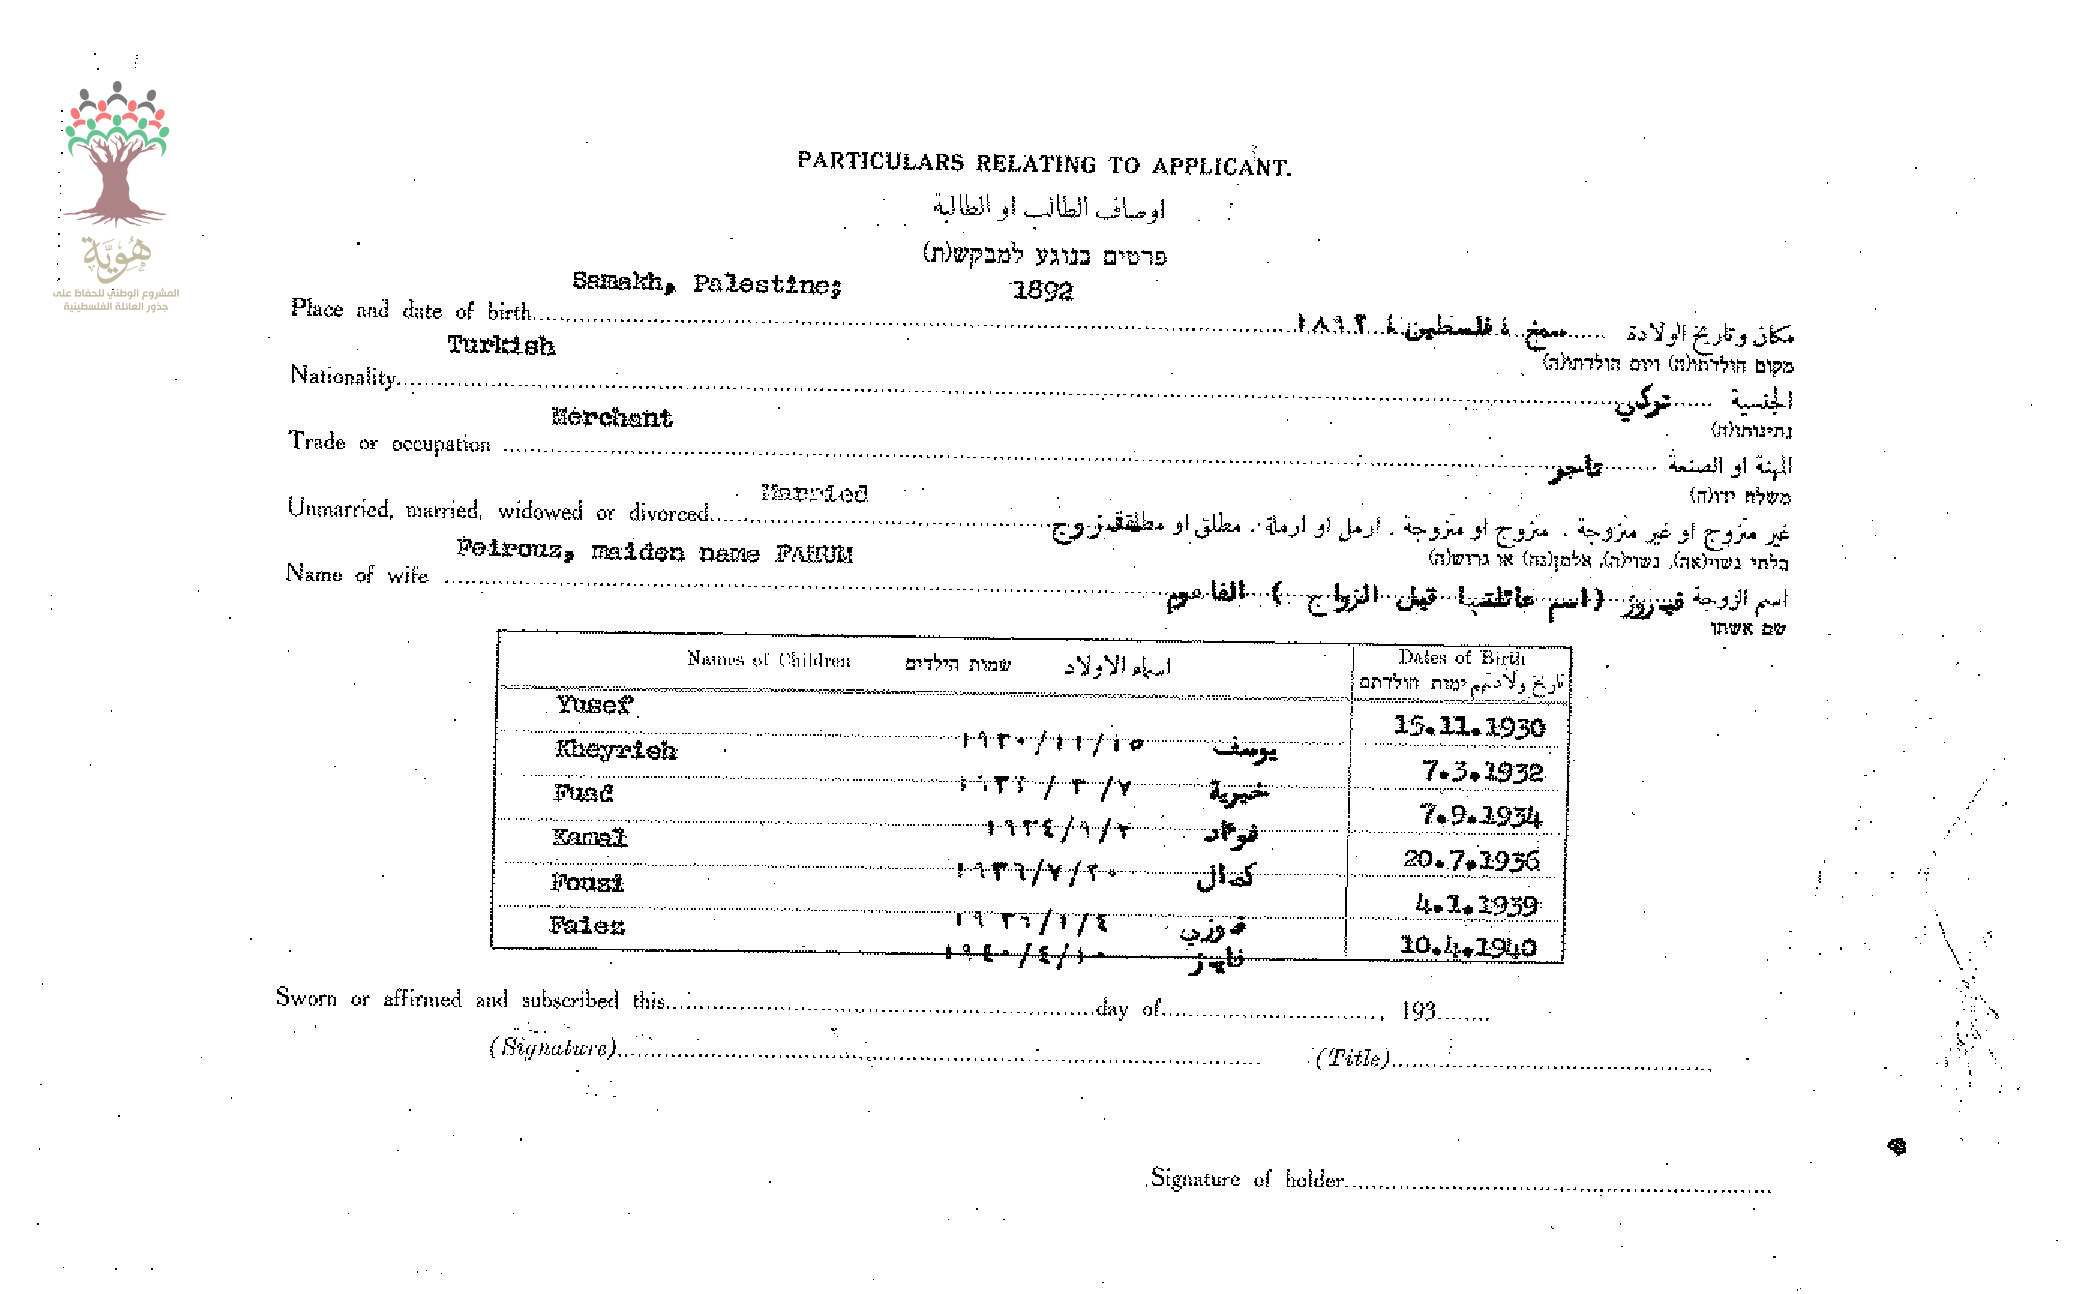 هُوِيَّة
المشروع الوطني للحفاظ على
جذور العائلة الفلسطينية
PARTICULARS RELATING TO APPLICANT.
اوصاف الطالب او الطالبة
פרטים בנוגע למבקש(ת)
Samakh, Palestine; 1892
Place and date of birth مكان وتاريخ الولادة سمخ ٤ فلسطين ٤ ١٨٩٢
מקום הולדתו(ה) ויום הולדתו(ה)
Turkish
Nationality الجنسية توكي
נתינותו(ה)
Merchant
Trade or occupation المهنة او الصنعة تاجر
משלח ידו(ה)
Married
Unmarried, married, widowed or divorced غير متزوج او غير متزوجة . متزوج او متزوجة . ارمل او ارملة . مطلق او مطلقة
בלתי נשוי(אה), נשוי(ה), אלמן(נה) או גרוש(ה)
Feirouz, maiden name FAHUM
Name of wife اسم الزوجة فيروز (اسم عائلتها قبل الزواج) الفاهوم
שם אשתו
Names of Children שמות הילדים اسماء الاولاد Dates of Birth
تاريخ ولادتهم ימות הולדתם
Yusef يوسف ١٩٣٠/١١/١٥ 15.11.1930
Kheyrieh خيرية ١٩٣٢/٣/٧ 7.3.1932
Fuad فواد ١٩٣٤/٩/٢ 7.9.1934
Kamal كمال ١٩٣٦/٧/٢٠ 20.7.1936
Fouzi فوزي ١٩٣٩/١/٤ 4.1.1939
Faiez فايز ١٩٤٠/٤/١٠ 10.4.1940
Sworn or affirmed and subscribed this day of , 193
(Signature) (Title)
Signature of holder